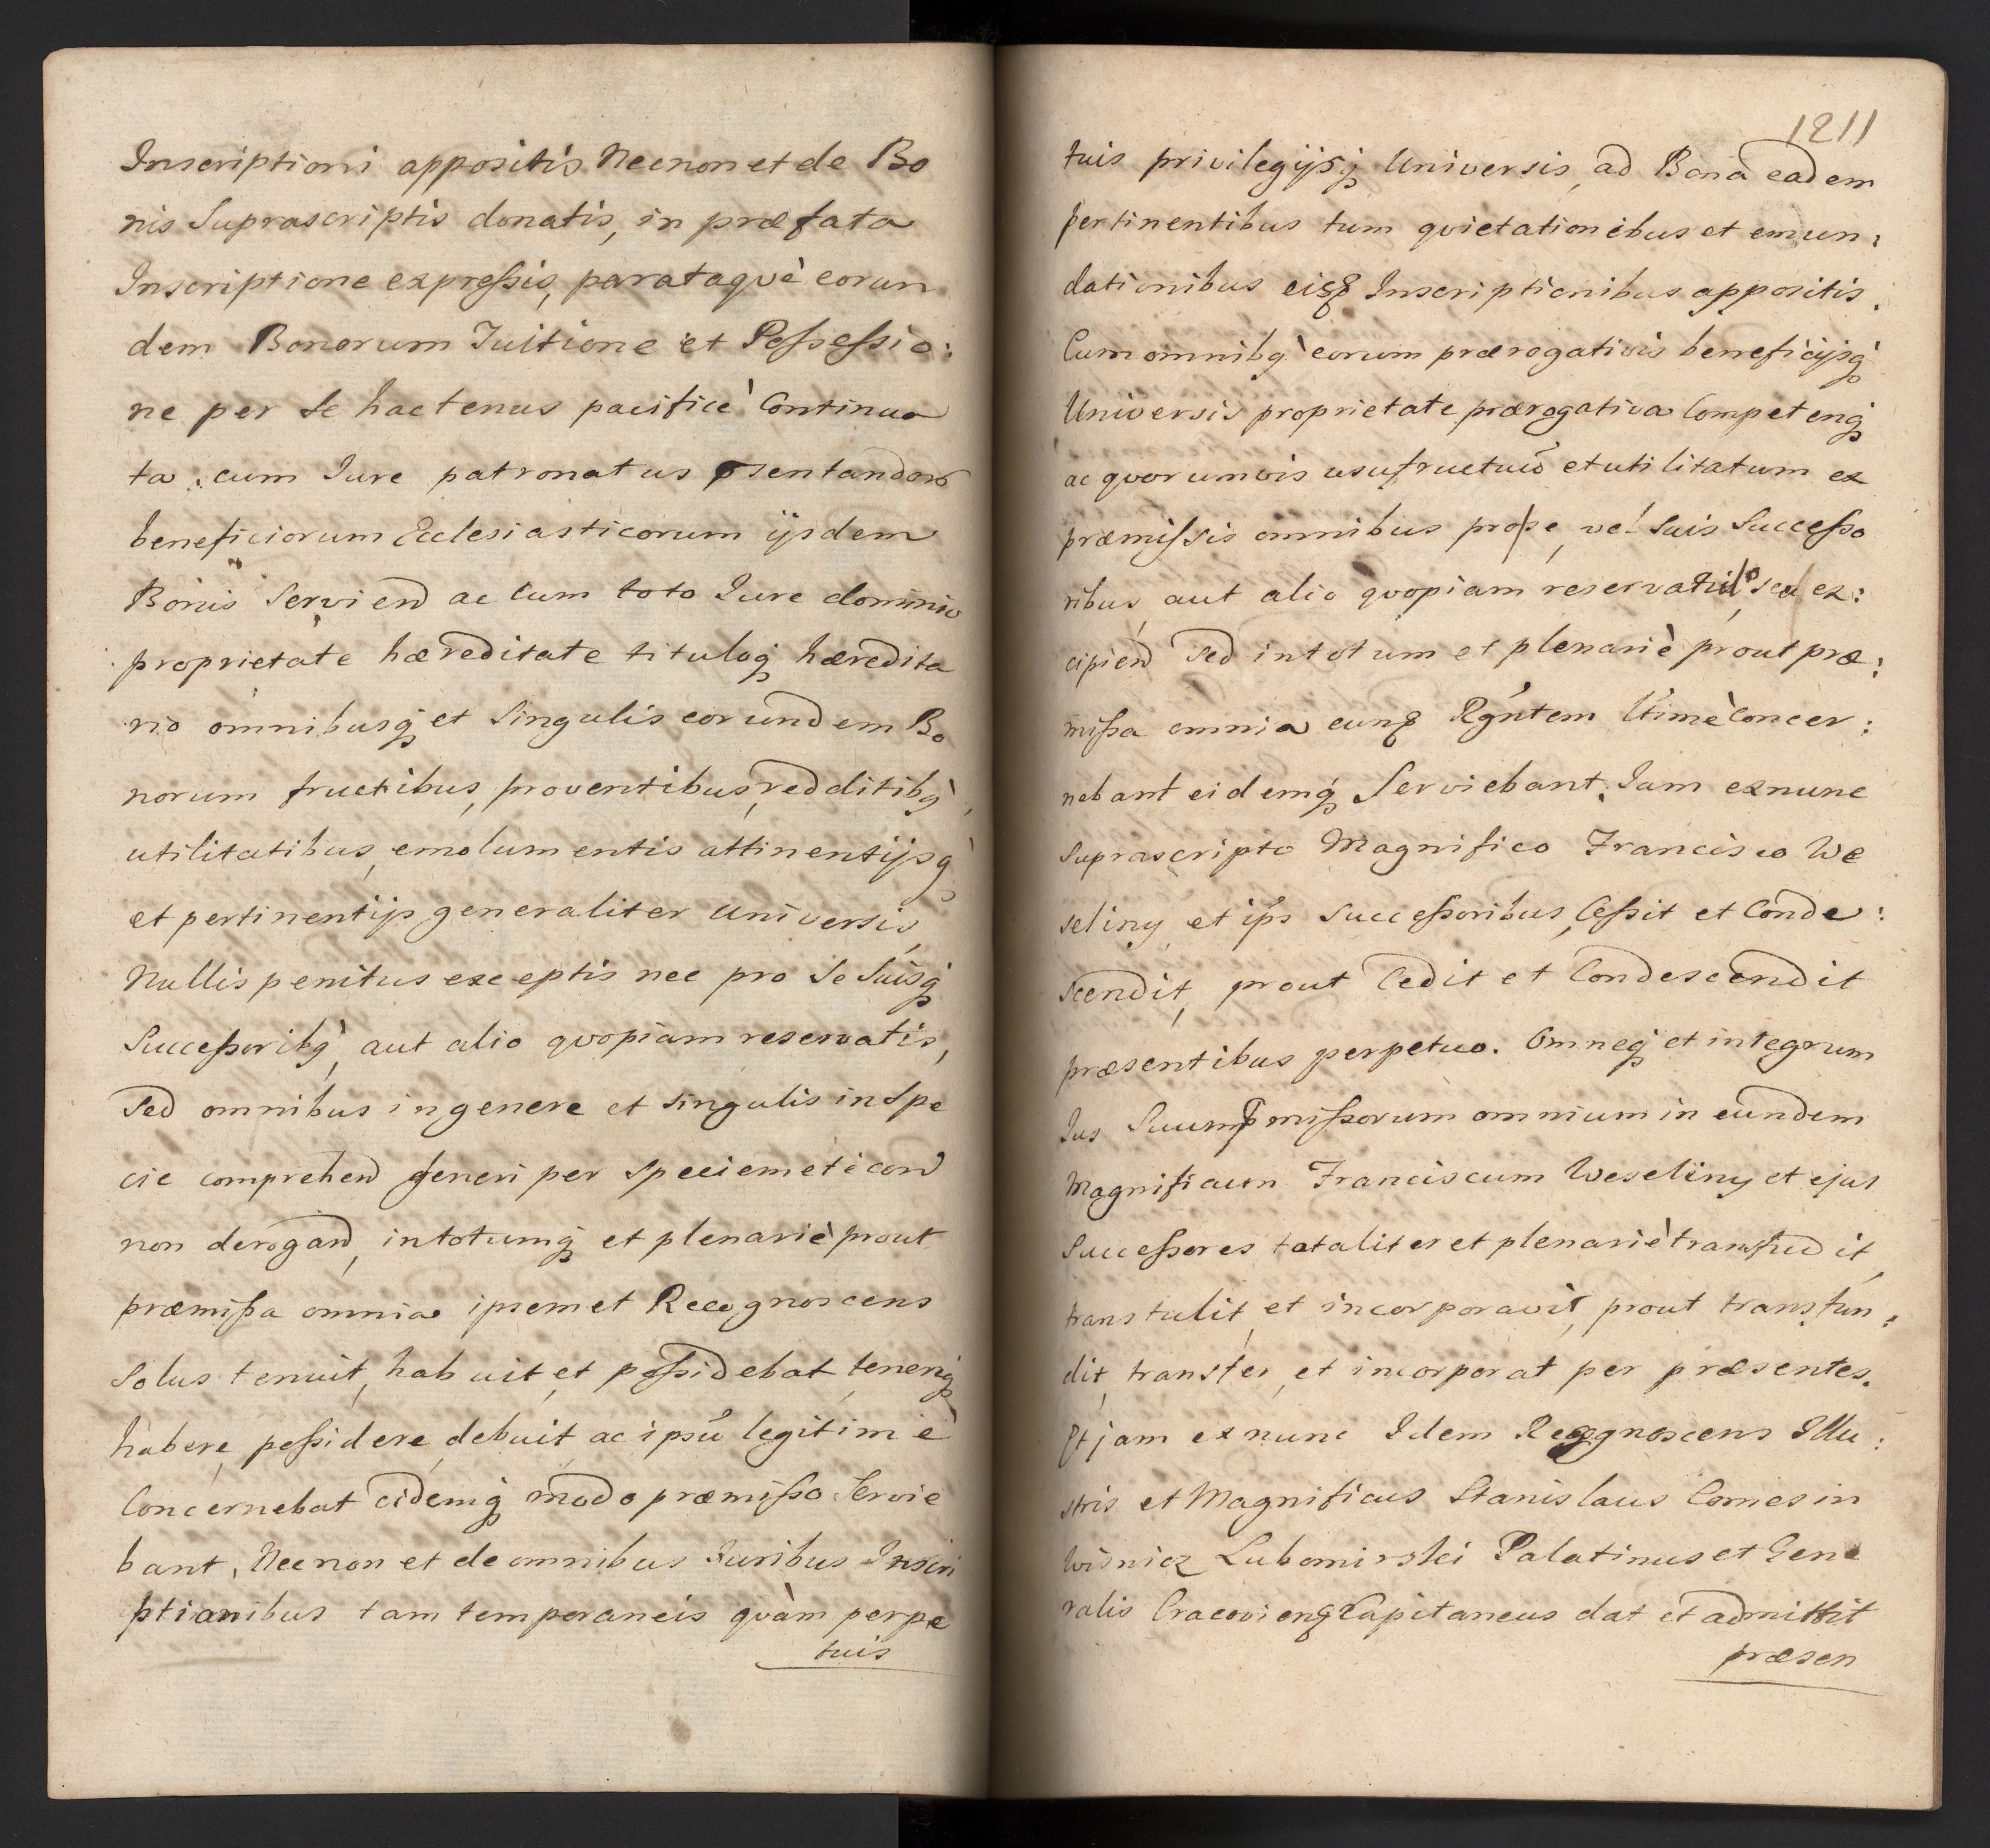 Inscriptioni appositis Necnon et de Bo
nis Suprascriptis donatis, in præfata
Inscriptione expreſsis, parataqvè eorun
dem Bonorum Tuitione et Poſseſsio:
ne per Se hactenus pacificè Continua
ta, cum Iure patronatus
beneficiorum Ecclesiasticorum ijsdem
Bonis Serviend ac Cum toto Iure dominio
proprietate hæreditate tituloq hæredita
rio omnibusq et Singulis eorundem Bo
norum fructibus, proventibus, redditibq,
utilitatibus, emolumentis attinentijsq
et pertinentijs generaliter universis,
Nullis penitus exceptis nec pro Se Suisq
Succeſsoribq, aut alio qvopiam reservatis,
Sed omnibus in genere et singulis in Spe
cie comprehend generi per Speciem et è cond
non derogand, in totumq et plenariè prout
præmiſsa omnia ipsemet Recognoscens
Solus tenuit, habuit, et poſsidebat, tenereq
habere, poſsidere, debuit, ac ipsū legitimè
Concernebat eidemq modo præmiſso Servie
bant, Necnon et de omnibus Iuribus Inscri
ptionibus tam temporaneis qvàm perpe
tuis
1211
tuis privilegijsq Universis, ad Bona eadem
pertinentibus tum qvietationibus et emun:
dationibus eisq Inscriptionibus appositis.
Cum omnibq eorum prærogativis beneficijsq
Universis proprietate prærogativa Competenq
ac qvorumvis usufructuū et utilitatum ex
præmiſsis omnibus pro se, vel Suis Succeſso
ribus, aut alio qvopiam seu ex:
cipiend Sed in totum et plenariè prout præ:
miſsa omnia eunq Rgntem Ltimè Concer:
nebant eidemq Serviebant, Iam exnunc
Suprascripto Magnifico Francisco We
seliny et ips Succeſsoribus, Ceſsit et Conde:
scendit, prout Cedit et Condescendit
præsentibus perpetuo. Omneq et integrum
Ius Suum pmiſsorum omnium in eundem
Magnificum Franciscum Weseliny et ejus
Succeſsores totaliter et plenariè transfudit,
transtulit, et incorporavit, prout transfun:
dit, transfer, et incorporat per præsentes.
Et jam exnunc Idem Recognoscens Illu:
stris et Magnificus Stanislaus Comes in
Wisnicz Lubomirski Palatinus et Gene
ralis Cracovienq Capitaneus dat et admittit
præsen